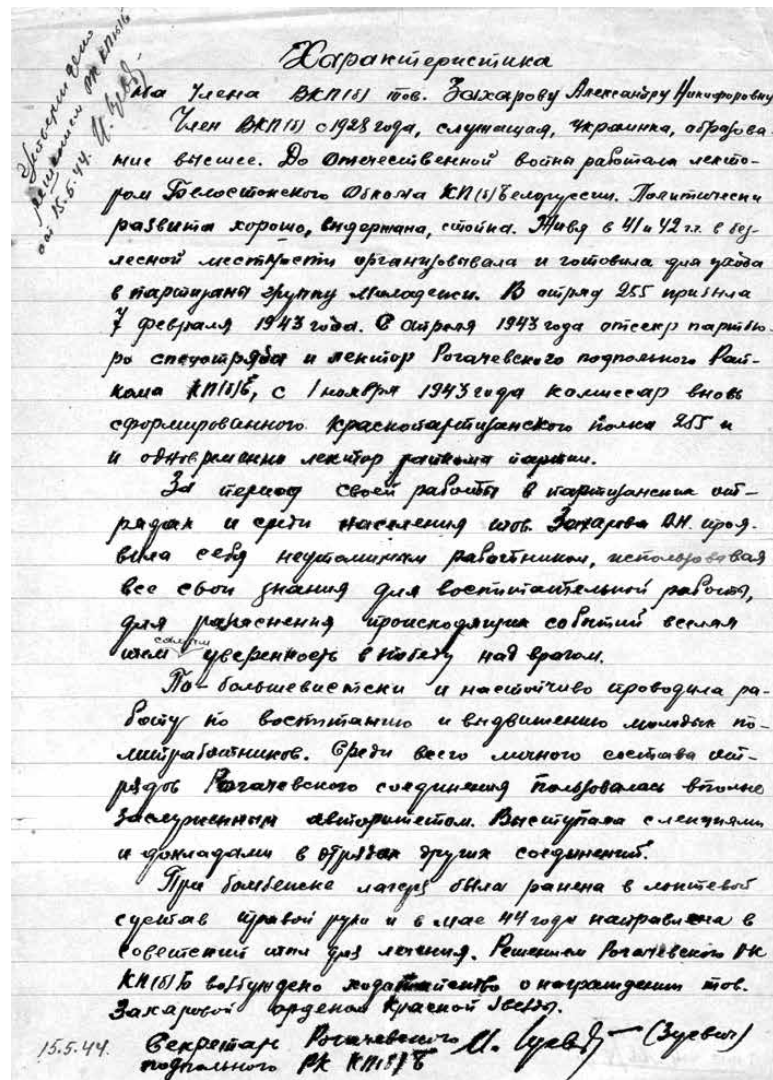 Утверждено
решением РК КП(б)Б
от 15.5.44. И. Зуев
Характеристика
на члена ВКП(б) тов. Захарову Александру Никифоровну
Член ВКП(б) с 1928 года, служащая, украинка, образова-
ние высшее. До Отечественной войны работала лекто-
ром Белостокского Обкома КП(б) Белоруссии. Политически
развита хорошо, выдержана, стойка. Живя в 41 и 42 г.г. в без-
лесной местности организовывала и готовила для ухода
в партизаны группу молодежи. В отряд 255 прибыла
7 февраля 1943 года. С апреля 1943 года отсекр партбю-
ро спецотряда и лектор Рогачевского подпольного Рай-
кома КП(б)Б, с 1 ноября 1943 года комиссар вновь
сформированного краснопартизанского полка 255 и
и одновременно лектор райкома партии.
За период своей работы в партизанских от-
рядах и среди населения тов. Захарова А.Н. проя-
вила себя неутомимым работником, использовавая
все свои знания для воспитательной работы,
для разяснения происходящих событий вселяя
тем самым уверенность в победу над врагом.
По-большевистски и настойчиво проводила ра-
боту по воспитанию и выдвижению молодых по-
литработников. Среди всего личного состава от-
рядов Рогачевского соединения пользовалась вполне
заслуженным авторитетом. Выступала с лекциями
и докладами в отрядах других соединений.
При бомбежке лагеря была ранена в локтевой
сустав правой руки и в мае 44 года направлена в
советский тыл для лечения. Решением Рогачевского РК
КП(б)Б возбуждено ходатайство о награждении тов.
Захаровой орденом Красной Звезды.
15.5.44. Секретарь Рогачевского И. Зуев (Зуевич)
подпольного РК КП(б)Б